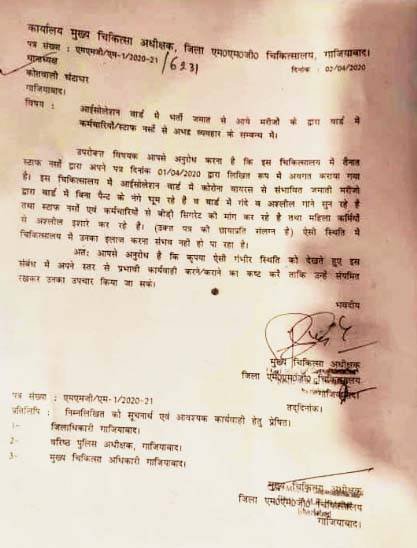 कार्यालय मुख्य चिकित्सा अधीक्षक, जिला एम०एम०जी० चिकित्सालय, गाजियाबाद।
पत्र संख्या : एमएमजी/एम-1/2020-21/6231 दिनांक : 02/04/2020
थानाध्यक्ष
कोतवाली घंटाघर
गाजियाबाद।
विषय : आईसोलेशन वार्ड में भर्ती जमात से आये मरीजो के द्वारा वार्ड में
कर्मचारियों/स्टाफ नर्सो से अभद्र व्यवहार के सम्बन्ध में।
उपरोक्त विषयक आपसे अनुरोध करना है कि इस चिकित्सालय में तैनात
स्टाफ नर्सो द्वारा अपने पत्र दिनांक 01/04/2020 द्वारा लिखित रूप में अवगत कराया गया
है। इस चिकित्सालय में आईसोलेशन वार्ड में कोरोना वायरस से संभावित जमाती मरीजो
द्वारा वार्ड में बिना पैन्ट के नंगे घूम रहे है व वार्ड में गंदे व अश्लील गाने सुन रहे है
तथा स्टाफ नर्सो एवं कर्मचारियों से बीड़ी सिगरेट की मांग कर रहे है तथा महिला कर्मियों
से अश्लील इशारे कर रहे है। (उक्त पत्र की छायाप्रति संलग्न है) ऐसी स्थिति में
चिकित्सालय में उनका इलाज करना संभव नहीं हो पा रहा है।
अतः आपसे अनुरोध है कि कृपया ऐसी गंभीर स्थिति को देखते हुए इस
संबंध में अपने स्तर से प्रभावी कार्यवाही करने/कराने का कष्ट करें ताकि उन्हें संयमित
रखकर उनका उपचार किया जा सके।
भवदीय
मुख्य चिकित्सा अधीक्षक
जिला एम०एम०जी० चिकित्सालय
गाजियाबाद।
पत्र संख्या : एमएमजी/एम-1/2020-21 तद्दिनांक।
प्रतिलिपि : निम्नलिखित को सूचनार्थ एवं आवश्यक कार्यवाही हेतु प्रेषित।
1- जिलाधिकारी गाजियाबाद।
2- वरिष्ठ पुलिस अधीक्षक, गाजियाबाद।
3- मुख्य चिकित्सा अधिकारी गाजियाबाद।
मुख्य चिकित्सा अधीक्षक
जिला एम०एम०जी० चिकित्सालय
गाजियाबाद।